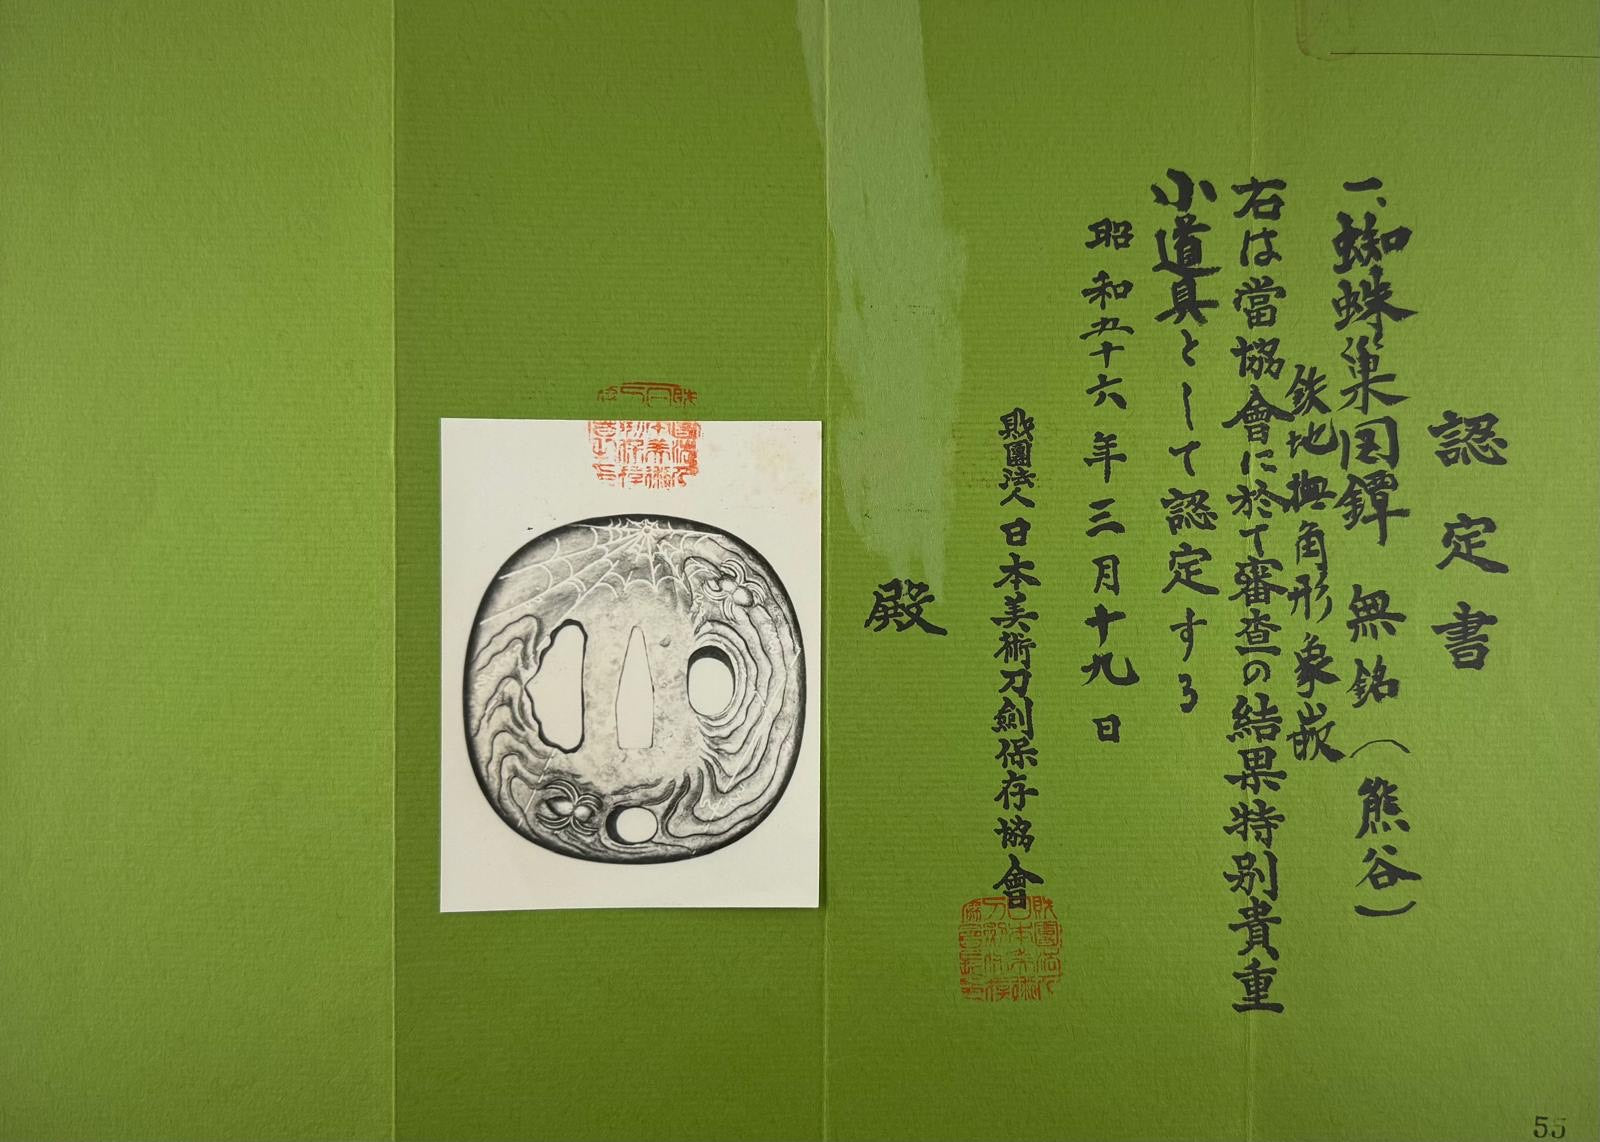 認定書
一、蜘蛛巣図鐔 無銘(熊谷)
鉄地撫角形象嵌
右は當協會に於て審査の結果特別貴重
小道具として認定する
昭和五十六年三月十九日
財團法人日本美術刀劍保存協會
殿
55